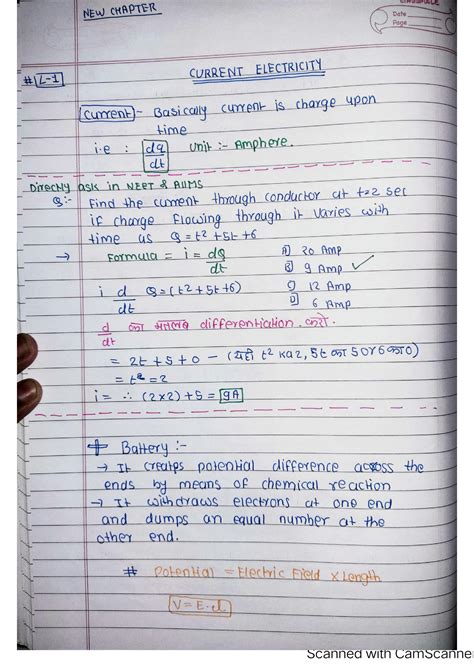 NEW CHAPTER
Date
Page
# L-1
CURRENT ELECTRICITY
Current :- Basically current is charge upon
time
i.e : dq/dt Unit :- Amphere.
Directly ask in NEET & AIIMS
Q:- Find the current through conductor at t=2 sec
if charge flowing through it varies with
time as Q=t²+5t+6
→ Formula = i = dQ/dt
A) 20 Amp
B) 9 Amp ✓
i d/dt Q=(t²+5t+6)
C) 12 Amp
D) 6 Amp
d/dt का मतलब differentiation करो.
= 2t+5+0 - (यही t² का 2, 5t का 5 or 6 का 0)
= t = 2
i = ∴ (2×2)+5 = 9A
+ Battery :-
→ It creates potential difference across the
ends by means of chemical reaction
→ It withdraws electrons at one end
and dumps an equal number at the
other end.
# Potential = Electric Field × Length
V = E.d
Scanned with CamScanne